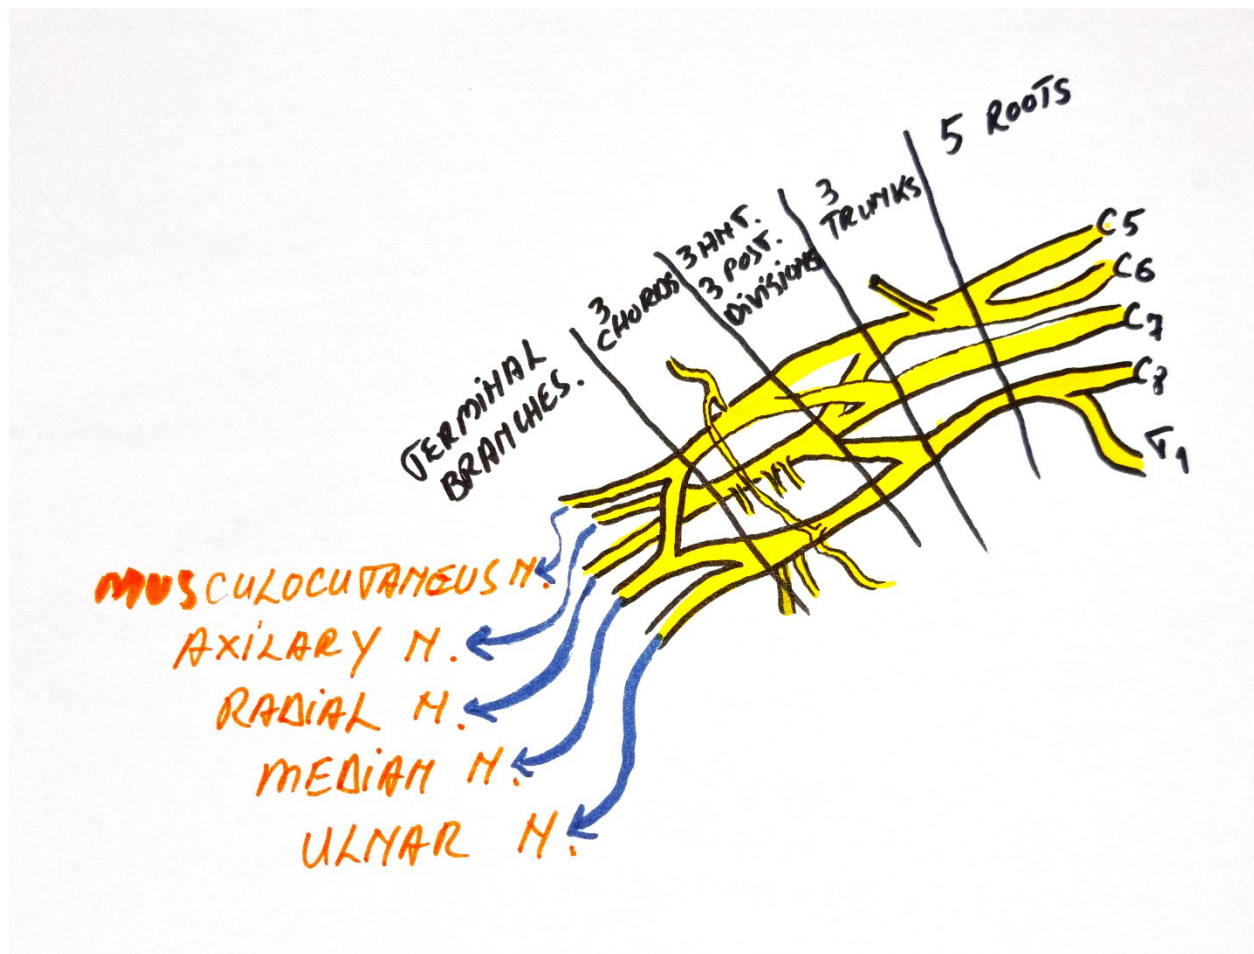 5 ROOTS
3
TRUNKS
3 ANT.
3 POST.
DiVisiONS
3
CHORDS
TERMINAL
BRANCHES.
C5
C6
C7
C8
T1
MUSCULOCUTANEUS N.
AXILARY N.
RADiAL N.
MEDiAN N.
ULNAR N.